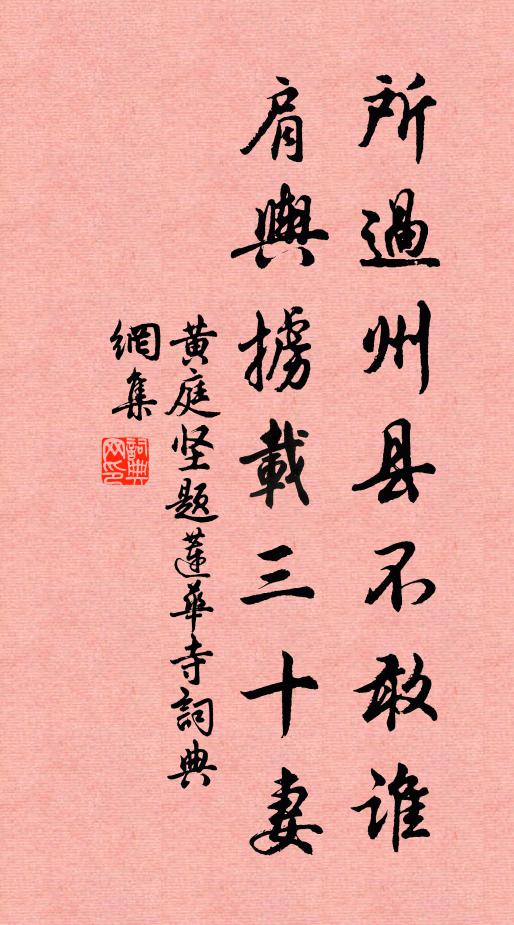 所過州县不敢谁
肩輿擄載三十妻
黄庭坚題蓮華寺詞典
網集
詞典
网印